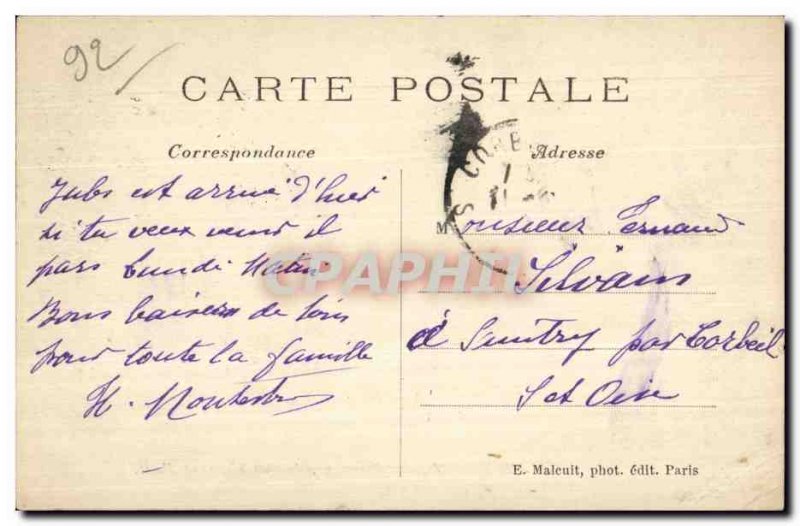 92
CARTE POSTALE
Correspondance
Adresse
Jules est arrivé d'hier
si tu veux venir il
pars Lundi Matin
Bons baisers de tous
pour toute la famille
H.
Monsieur Fernand
Silvain
à Saintry par Corbeil
S et Oise
CPAPHIL
E. Malcuit, phot. édit. Paris